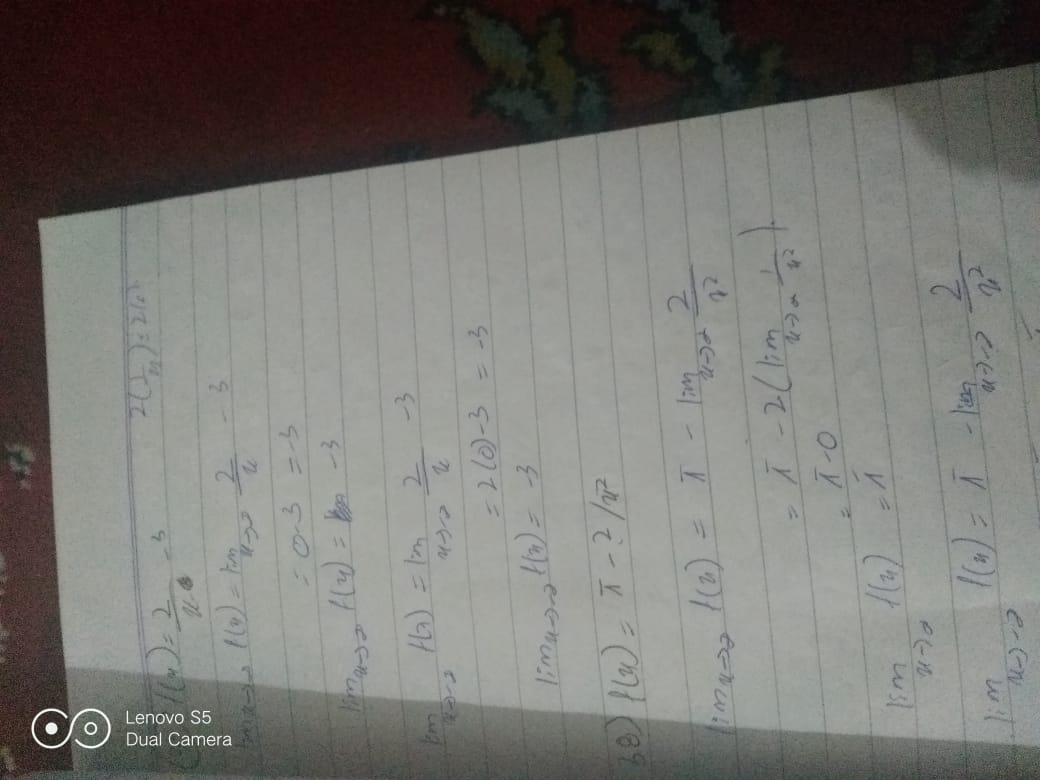 2(1/x) = 2(0)
f(x) = 2/x - 3
lim x→∞ f(x) = lim x→∞ 2/x - 3
= 0 - 3 = -3
lim x→∞ f(x) = -3
lim x→-∞ f(x) = lim x→-∞ 2/x - 3
= 2(0) - 3 = -3
lim x→-∞ f(x) = -3
38) f(x) = π - 2/x²
lim x→∞ f(x) = π - lim x→∞ 2/x²
= π - 2(lim x→∞ 1/x²)
= π - 0
lim x→∞ f(x) = π
lim x→-∞ f(x) = π - lim x→-∞ 2/x²
Lenovo S5
Dual Camera